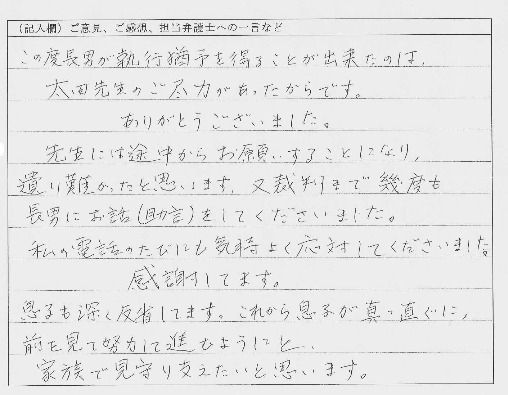 (記入欄)ご意見、ご感想、担当弁護士への一言など
この度長男が執行猶予を得ることが出来たのは、
太田先生のご尽力があったからです。
ありがとうございました。
先生には途中からお願いすることになり、
遣り難かったと思います。又裁判まで幾度も
長男にお話(助言)をしてくださいました。
私の電話のたびにも気持よく応対してくださいました。
感謝してます。
息子も深く反省してます。これから息子が真っ直ぐに、
前を見て努力して進むようにと、
家族で見守り支えたいと思います。